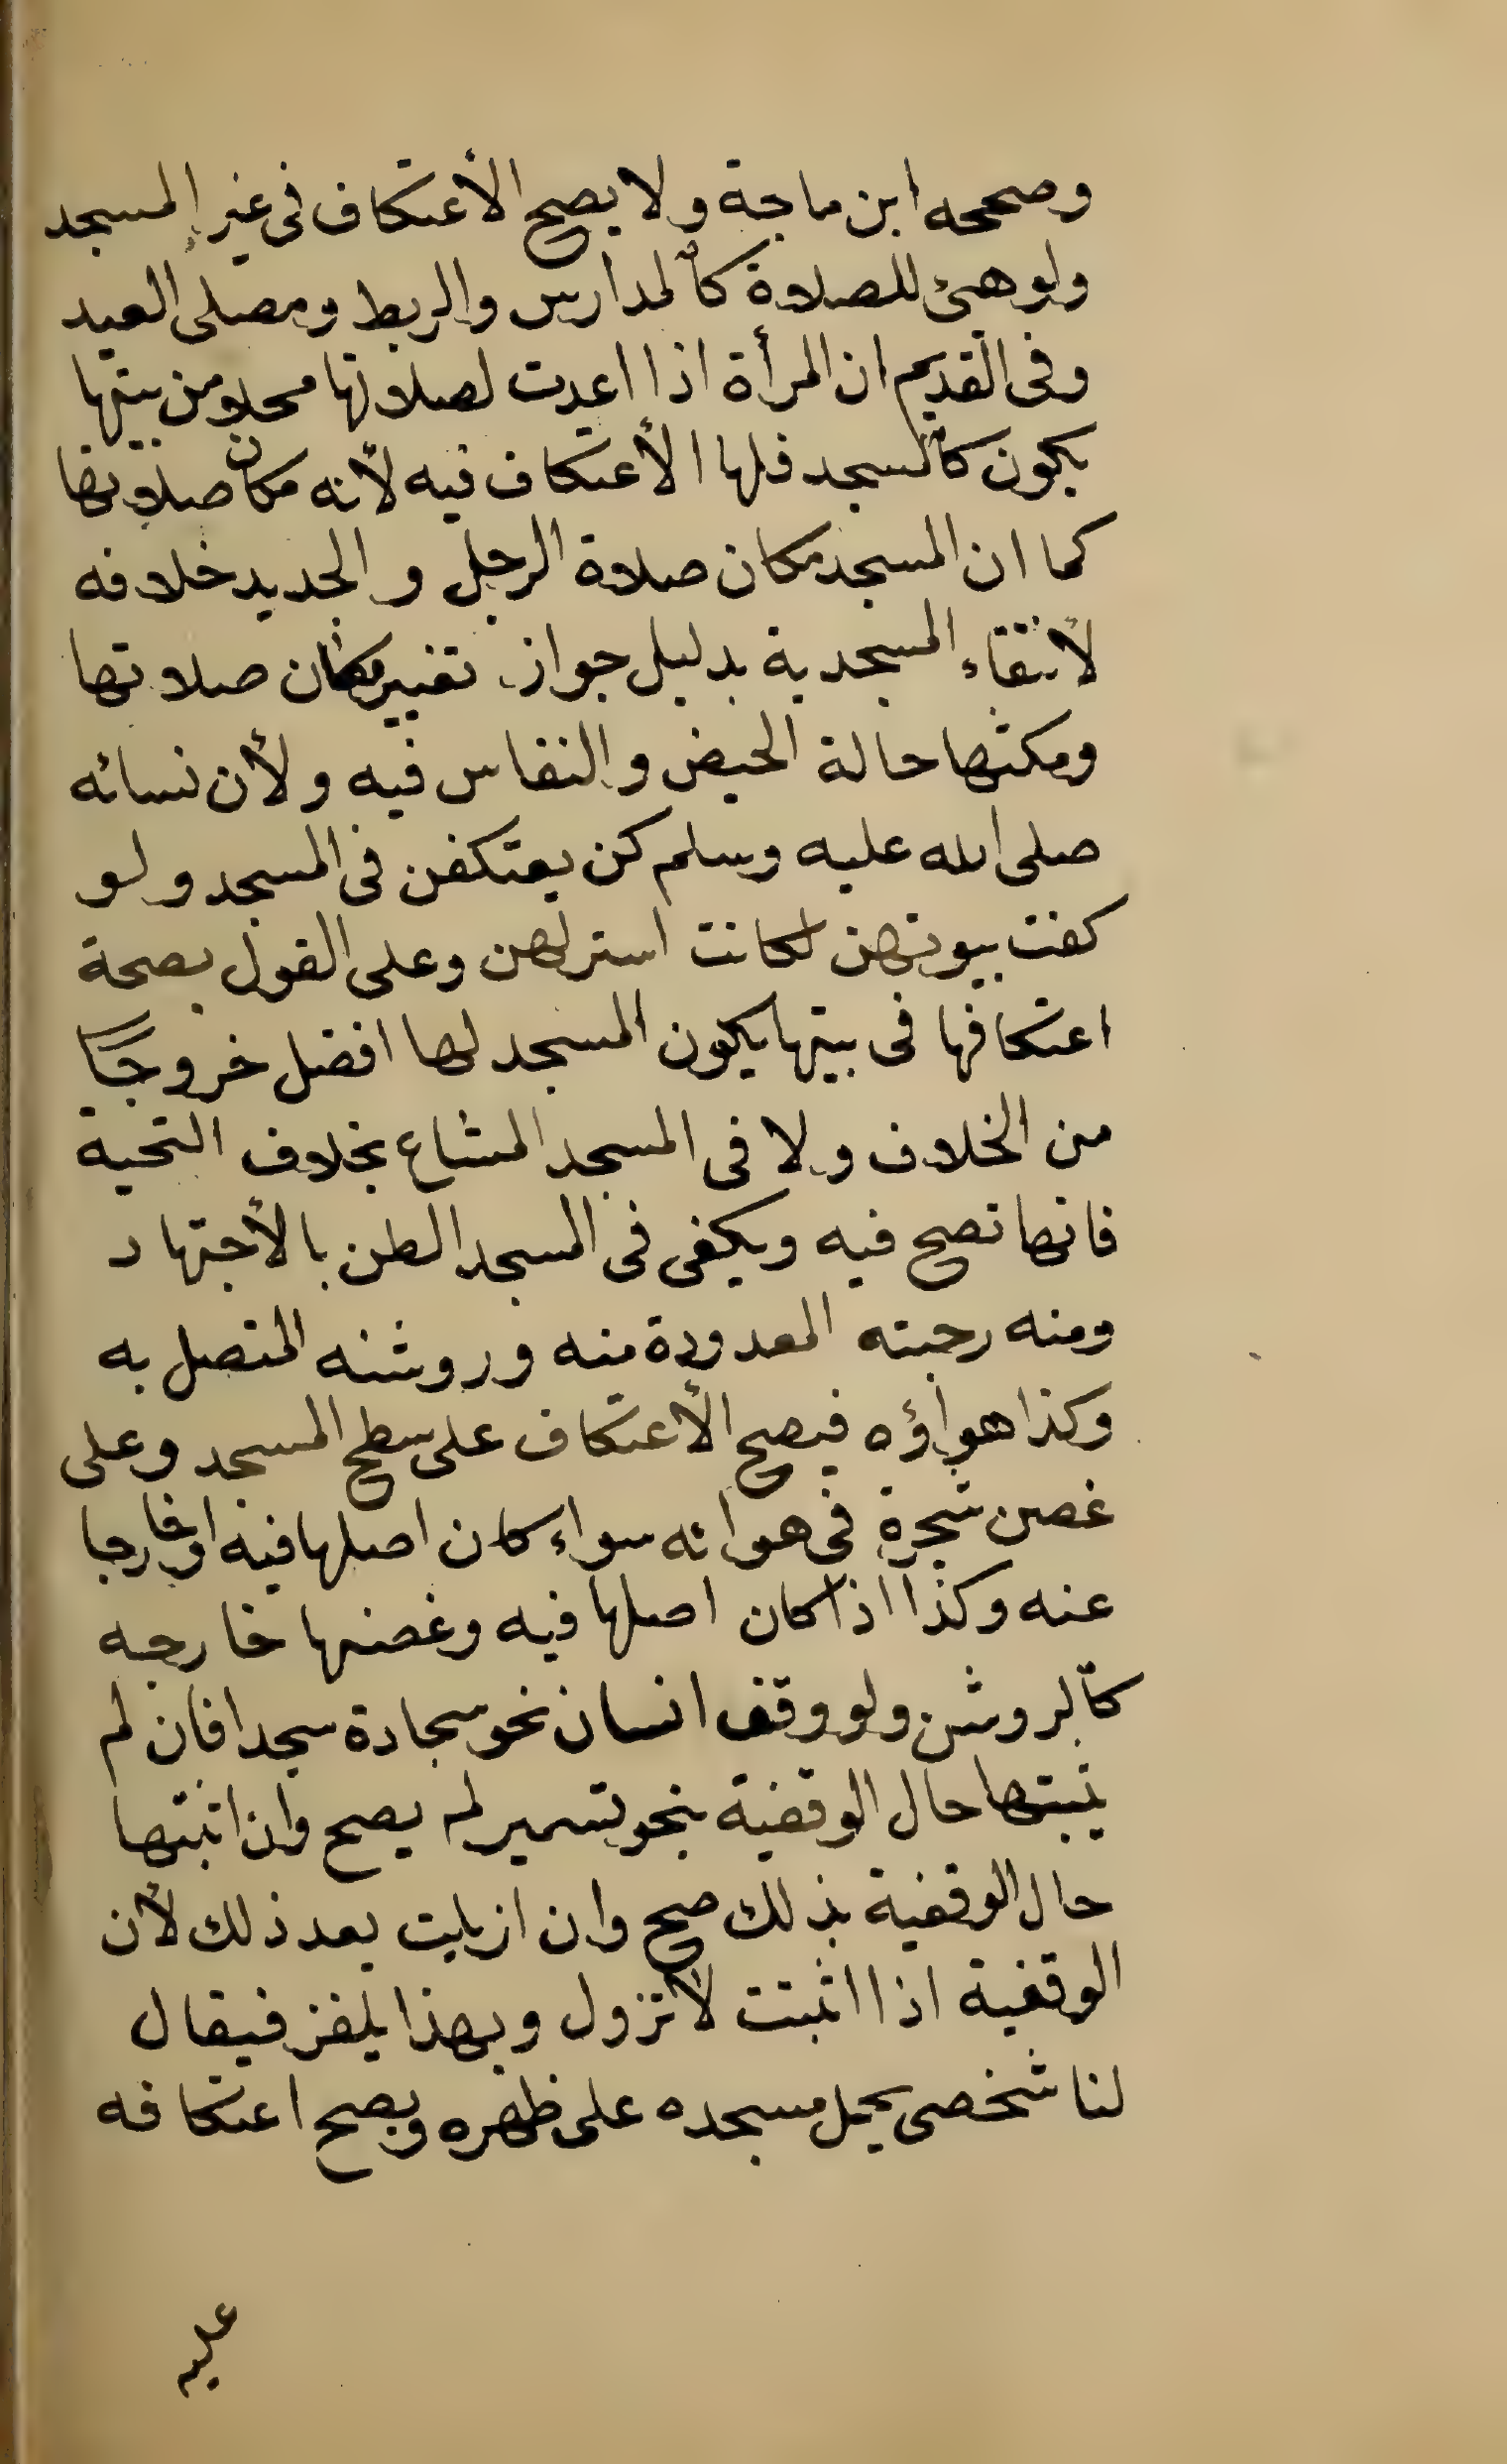 وصححه ابن ماجة ولا يصح الأعتكاف فى غير المسجد
ولو هيئ للصلاة كالمدارس والربط ومصلى العيد
وفى القديم ان المرأة اذا اعدت لصلاتها محلا من بيتها
يكون كالمسجد فلها الأعتكاف فيه لأنه مكان صلاتها
كما ان المسجد مكان صلاة الرجل والجديد خلافه
لأنتفاء المسجدية بدليل جواز تغيير مكان صلاتها
ومكثها حالة الحيض والنفاس فيه ولأن نسائه
صلى الله عليه وسلم كن يعتكفن فى المسجد ولو
كفت بيوتهن لكانت استر لهن وعلى القول بصحة
اعتكافها فى بيتها يكون المسجد لها افضل خروجًا
من الخلاف ولا فى المسجد المشاع بخلاف التحية
فانها تصح فيه ويكفى فى المسجد الظن بالأجتهاد
ومنه رحبته المعدودة منه وروشنه المتصل به
وكذا هواؤه فيصح الأعتكاف على سطح المسجد وعلى
غصن شجرة فى هوائه سواء كان اصلها فيه او خارجا
عنه وكذا اذا كان اصلها فيه وغصنها خارجه
كالروشن ولو وقف انسان نحو سجادة مسجدا فان لم
يثبتها حال الوقفية بنحو تسمير لم يصح وان اثبتها
حال الوقفية بذلك صح وان ازيلت بعد ذلك لأن
الوقفية اذا اثبتت لا تزول وبهذا يلغز فيقال
لنا شخص يحمل مسجده على ظهره ويصح اعتكافه
عليه